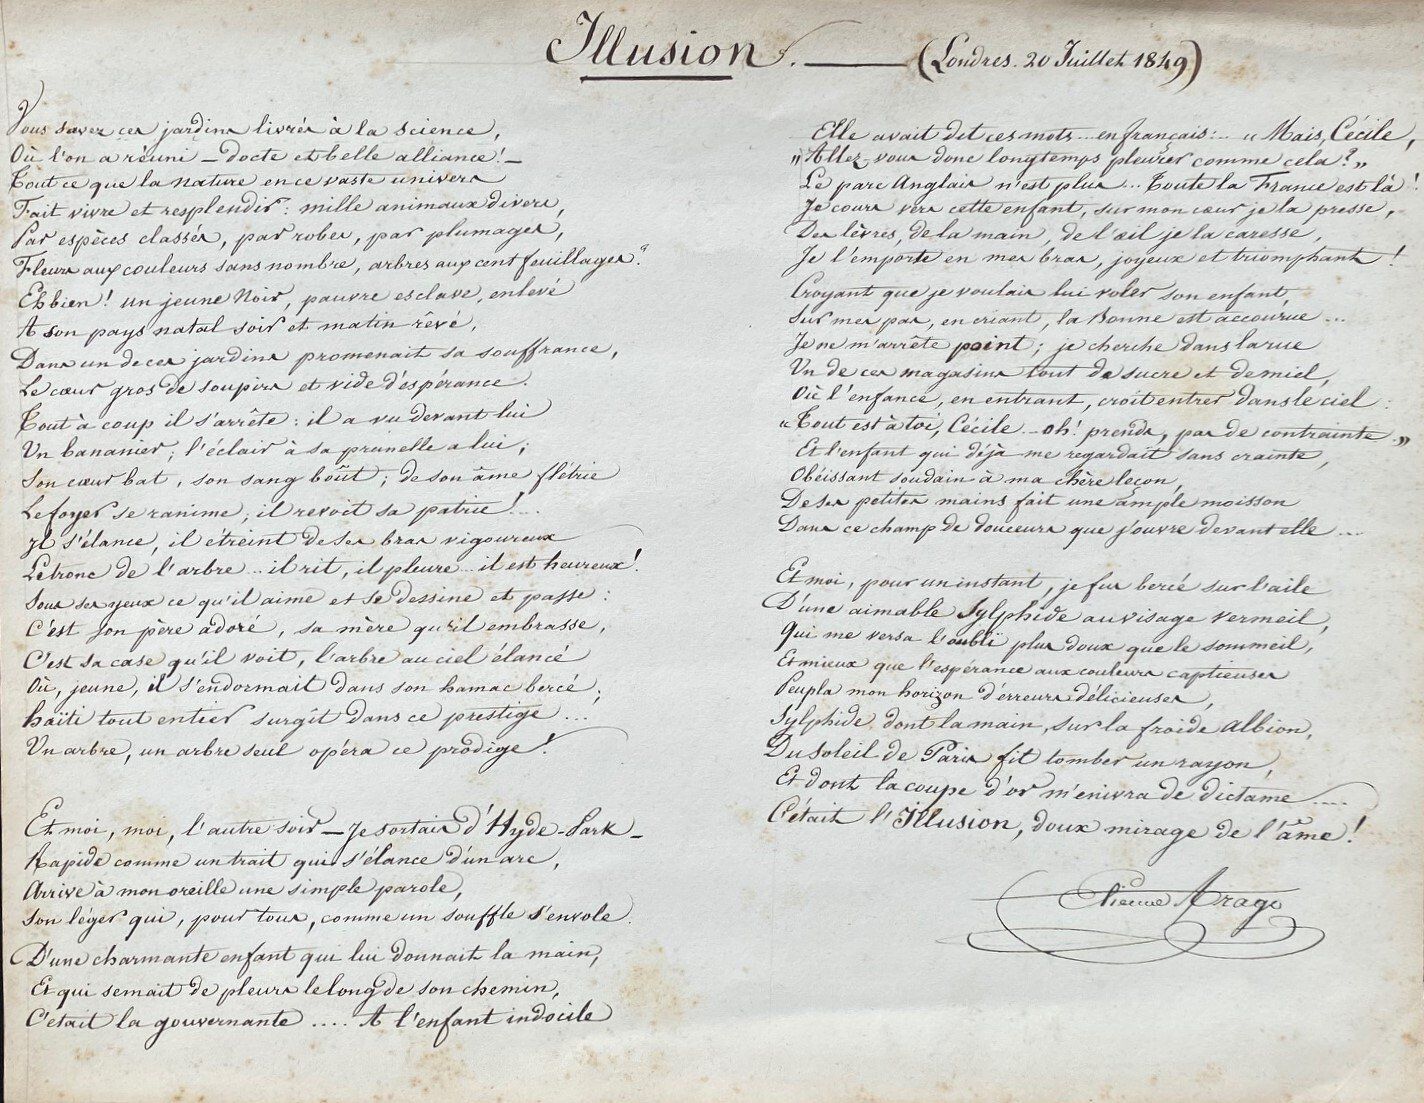 Illusion. — (Londres. 20 Juillet 1849)
Vous savez ces jardins livrés à la science,
Où l'on a réuni – docte et belle alliance! –
Tout ce que la nature en ce vaste univers
Fait vivre et resplendir : mille animaux divers,
Par espèces classés, par robes, par plumages,
Fleurs aux couleurs sans nombre, arbres aux cent feuillages?
Eh bien! un jeune Noir, pauvre esclave, enlevé
A son pays natal soir et matin rêvé,
Dans un de ces jardins promenait sa souffrance,
Le cœur gros de soupirs et vide d'espérance.
Tout à coup il s'arrête : il a vu devant lui
Un bananier; l'éclair à sa prunelle a lui;
Son cœur bat, son sang boût; de son âme flétrie
Le foyer se ranime; il revoit sa patrie!...
Il s'élance, il étreint de ses bras vigoureux
Le tronc de l'arbre... il rit, il pleure... il est heureux!
Sous ses yeux ce qu'il aime et se dessine et passe :
C'est son père adoré, sa mère qu'il embrasse,
C'est sa case qu'il voit, l'arbre au ciel élancé
Où, jeune, il s'endormait dans son hamac bercé;
haïti tout entier surgît dans ce prestige...
Un arbre, un arbre seul opéra ce prodige!
Et moi, moi, l'autre soir – Je sortais d'Hyde-Park –
Rapide comme un trait qui s'élance d'un arc,
Arrive à mon oreille une simple parole,
Son léger qui, pour tous, comme un souffle s'envole.
D'une charmante enfant qui lui donnait la main,
Et qui semait de pleurs le long de son chemin,
C'était la gouvernante.... A l'enfant indocile
Elle avait dit ces mots... en français : – « Mais, Cécile,
„Allez-vous donc longtemps pleurer comme cela? „
Le parc Anglais n'est plus... Toute la France est là!
Je cours vers cette enfant, sur mon cœur je la presse,
Des lèvres, de la main, de l'œil je la caresse,
Je l'emporte en mes bras, joyeux et triomphant!
Croyant que je voulais lui voler son enfant,
Sur mes pas, en criant, la Bonne est accourue...
Je ne m'arrête point; je cherche dans la rue
Un de ces magasins tout de sucre et de miel,
Où l'enfance, en entrant, croit entrer dans le ciel :
« Tout est à toi, Cécile – oh! prends, pas de contrainte. „
Et l'enfant qui déjà me regardait sans crainte,
Obéissant soudain à ma chère leçon,
De ses petites mains fait une ample moisson
Dans ce champ de douceurs que j'ouvre devant elle...
Et moi, pour un instant, je fus bercé sur l'aile
D'une aimable Sylphide au visage vermeil,
Qui me versa l'oubli plus doux que le sommeil,
Et mieux que l'espérance aux couleurs captieuses
Peupla mon horizon d'erreurs délicieuses,
Sylphide dont la main, sur la froide Albion,
Du Soleil de Paris fit tomber un rayon,
Et dont la coupe d'or m'enivra de dictame....
C'était l'Illusion, doux mirage de l'âme!
Etienne Arago